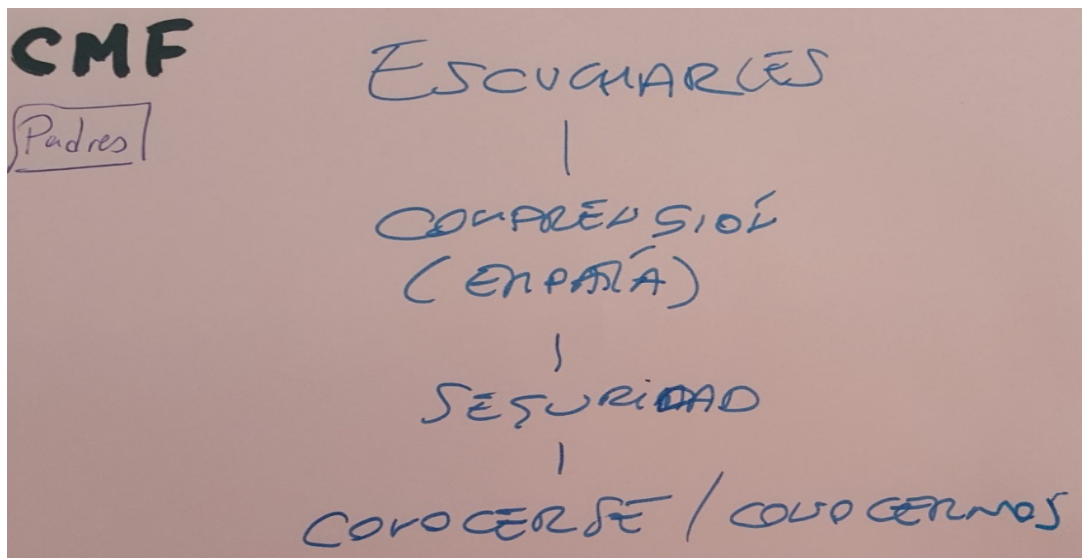 CMF
Padres
ESCUCHARLES
COMPRENSIÓN
(EMPATÍA)
SEGURIDAD
CONOCERSE / CONOCERNOS